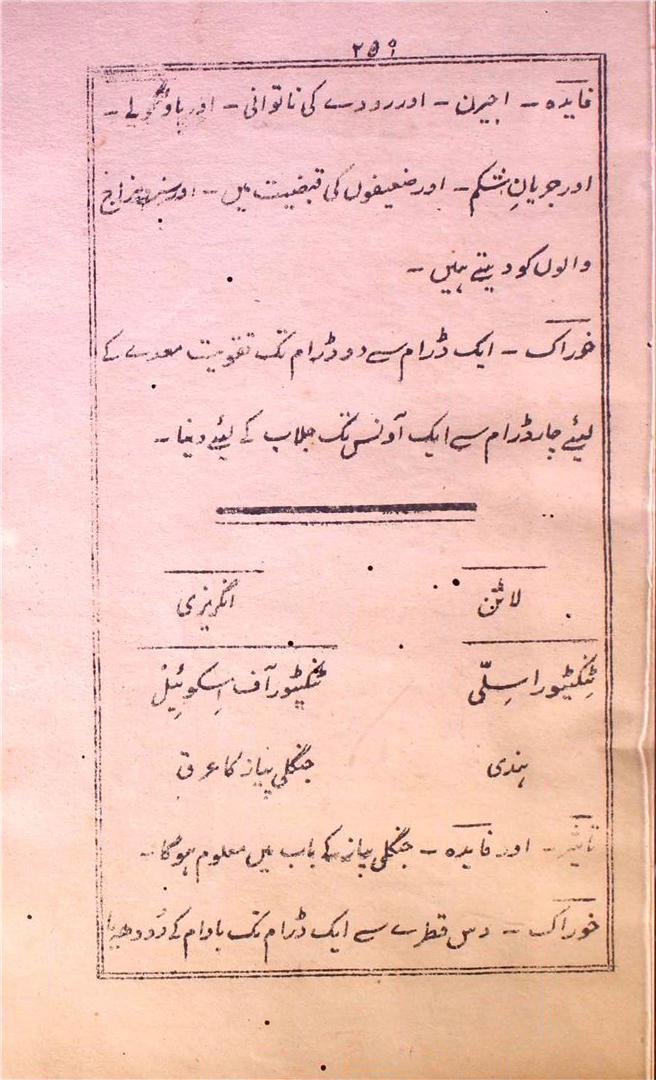 ۲۵۹
فایدہ ۔ اجیرن ۔ اور رودے کی ناتوانی ۔ اور باؤگولے ۔
اور جریانِ شکم ۔ اور ضعیفوں کی قبضیت میں ۔ اور مزاج
والوں کو دیتے ہیں ۔
خوراک ۔ ایک ڈرام سے دو ڈرام تک تقویت معدے کے
لیئے چار ڈرام سے ایک آونس تک جلاب کے لیئے دینا ۔
لاٹن انگریزی
ٹِنکٹیور اسِلّی ٹنکٹیور آف اِسکوئِیل
ہندی جنگلی پیاز کا عرق
تاثیر ۔ اور فایدہ ۔ جنگلی پیاز کے باب میں معلوم ہوگا ۔
خوراک ۔ دس قطرے سے ایک ڈرام تک بادام کے دُودھیا